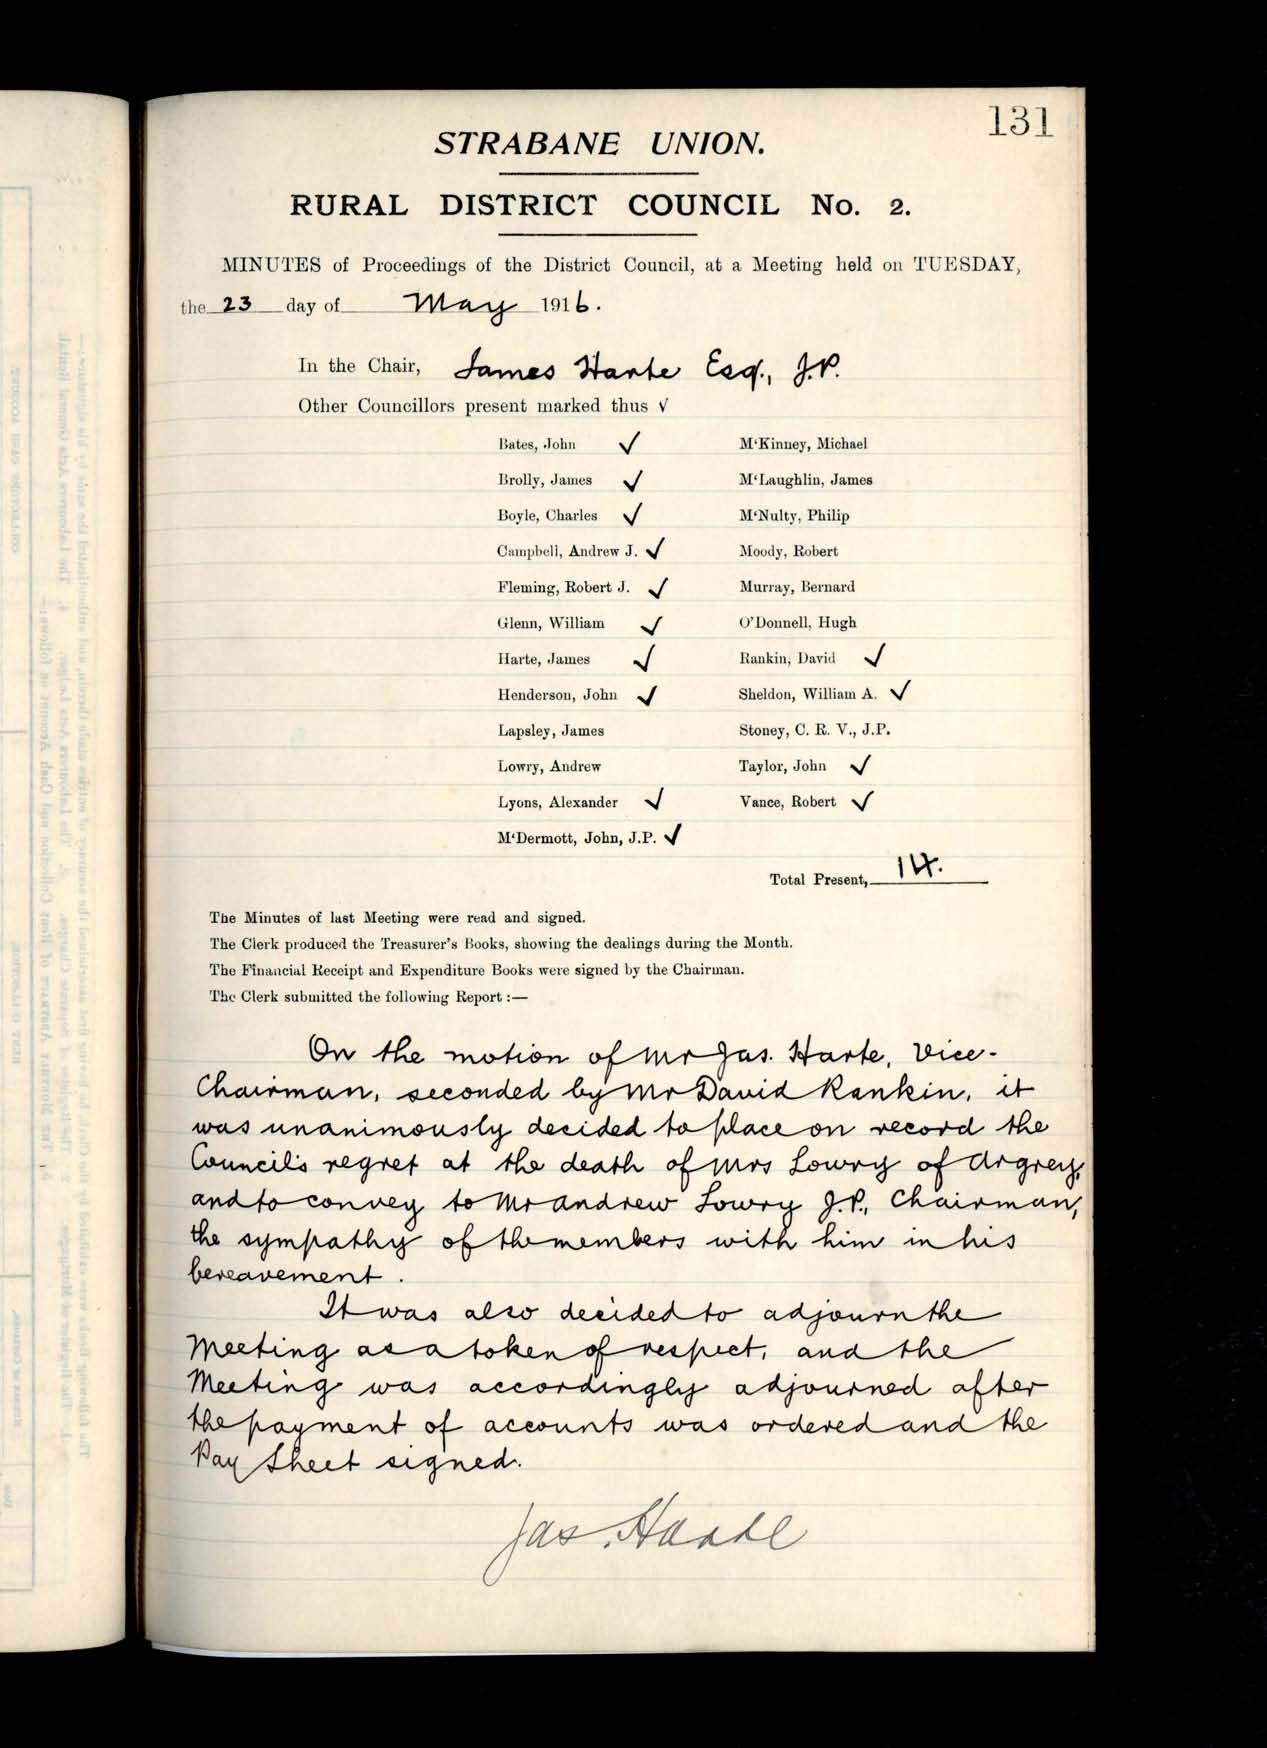 131
STRABANE UNION.
RURAL DISTRICT COUNCIL No. 2.
MINUTES of Proceedings of the District Council, at a Meeting held on TUESDAY,
the 23 day of May 1916.
In the Chair, James Harte Esq., J.P.
Other Councillors present marked thus √
Bates, John ✓ M‘Kinney, Michael
Brolly, James ✓ M‘Laughlin, James
Boyle, Charles ✓ M‘Nulty, Philip
Campbell, Andrew J. ✓ Moody, Robert
Fleming, Robert J. ✓ Murray, Bernard
Glenn, William ✓ O’Donnell, Hugh
Harte, James ✓ Rankin, David ✓
Henderson, John ✓ Sheldon, William A. ✓
Lapsley, James Stoney, C. R. V., J.P.
Lowry, Andrew Taylor, John ✓
Lyons, Alexander ✓ Vance, Robert ✓
M‘Dermott, John, J.P. ✓
Total Present, 14.
The Minutes of last Meeting were read and signed.
The Clerk produced the Treasurer’s Books, showing the dealings during the Month.
The Financial Receipt and Expenditure Books were signed by the Chairman.
The Clerk submitted the following Report :—
On the motion of Mr Jas. Harte, Vice-
Chairman, seconded by Mr David Rankin, it
was unanimously decided to place on record the
Council's regret at the death of Mrs Lowry of Argrey,
and to convey to Mr Andrew Lowry J.P., Chairman,
the sympathy of the members with him in his
bereavement.
It was also decided to adjourn the
Meeting as a token of respect, and the
Meeting was accordingly adjourned after
the payment of accounts was ordered and the
Pay Sheet signed.
Jas. Harte